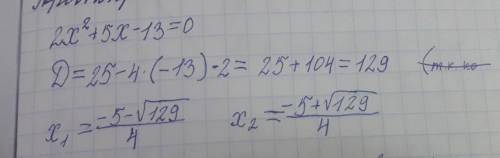 2x²+5x-13=0
D=25-4·(-13)·2=25+104=129
x₁=\frac{-5-√129}{4} x₂=\frac{-5+√129}{4}